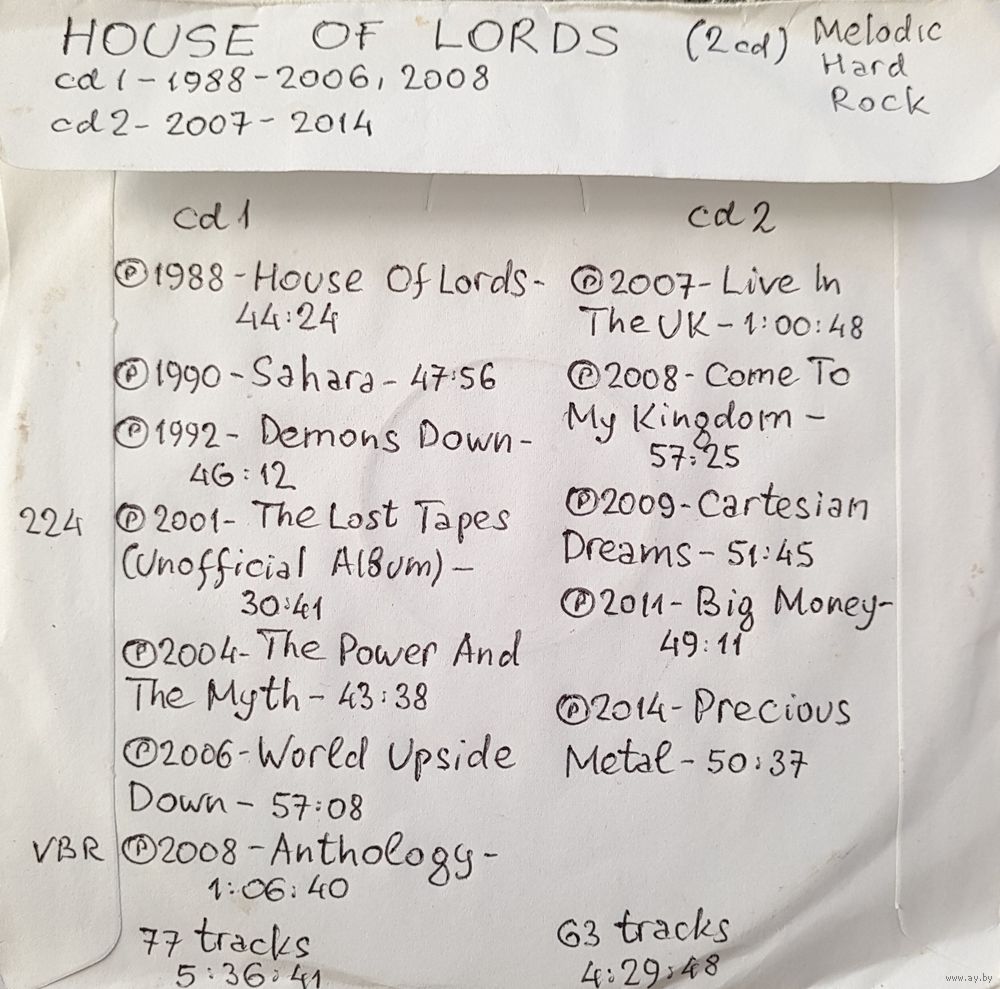 HOUSE OF LORDS (2cd) Melodic
Hard
Rock
cd1-1988-2006, 2008
cd2-2007-2014
cd1
Ⓟ1988-House Of Lords-
44:24
Ⓟ1990-Sahara-47:56
Ⓟ1992-Demons Down-
46:12
224 Ⓟ2001-The Lost Tapes
(Unofficial Album)-
30:41
Ⓟ2004-The Power And
The Myth-43:38
Ⓟ2006-World Upside
Down-57:08
VBR Ⓟ2008-Anthology-
1:06:40
77 tracks
5:36:41
cd2
Ⓟ2007-Live In
The UK-1:00:48
Ⓟ2008-Come To
My Kingdom-
57:25
Ⓟ2009-Cartesian
Dreams-51:45
Ⓟ2011-Big Money-
49:11
Ⓟ2014-Precious
Metal-50:37
63 tracks
4:29:48
www.ay.by